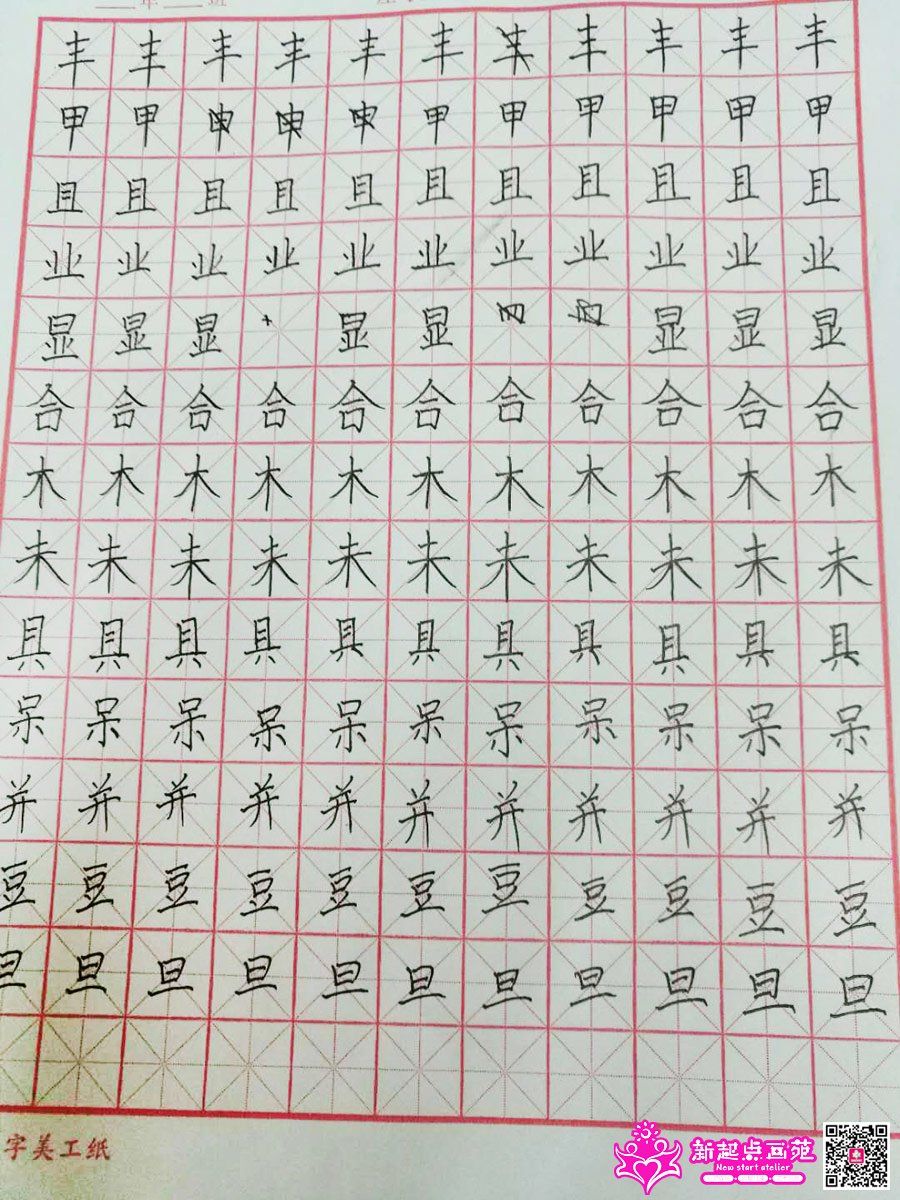 年 班
丰 丰 丰 丰 丰 丰 丰 丰 丰 丰
甲 甲 甲 甲 甲 甲 甲 甲
且 且 且 且 且 且 且 且 且 且 且
业 业 业 业 业 业 业 业 业 业 业
显 显 显 显 显 显 显 显
合 合 合 合 合 合 合 合 合 合 合
木 木 木 木 木 木 木 木 木 木 木
未 未 未 未 未 未 未 未 未 未 未
具 具 具 具 具 具 具 具 具 具 具
呆 呆 呆 呆 呆 呆 呆 呆 呆 呆 呆
并 并 并 并 并 并 并 并 并 并 并
豆 豆 豆 豆 豆 豆 豆 豆 豆 豆 豆
旦 旦 旦 旦 旦 旦 旦 旦 旦 旦 旦
字美工纸
新起点画苑
New start atelier